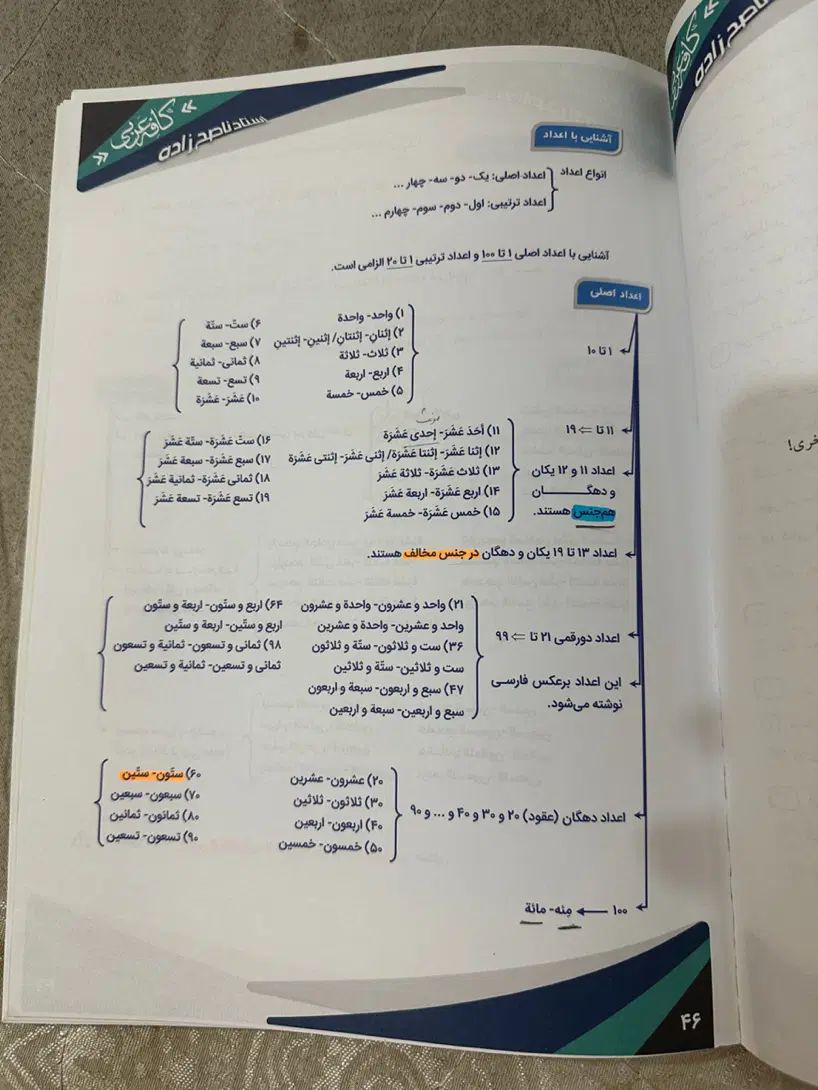 « کافه عربی »
استاد ناصح زاده
آشنایی با اعداد
انواع اعداد
اعداد اصلی: یک- دو- سه- چهار ...
اعداد ترتیبی: اول- دوم- سوم- چهارم ...
آشنایی با اعداد اصلی ۱ تا ۱۰۰ و اعداد ترتیبی ۱ تا ۲۰ الزامی است.
اعداد اصلی
۱ تا ۱۰
۱) واحد- واحدة
۲) إثنانِ- إثنتانِ/ إثنینِ- إثنتینِ
۳) ثلاث- ثلاثة
۴) اربع- اربعة
۵) خمس- خمسة
۶) ستّ- ستّة
۷) سبع- سبعة
۸) ثمانی- ثمانیة
۹) تسع- تسعة
۱۰) عَشَر- عَشَرَة
۱۱ تا ⇐ ۱۹
اعداد ۱۱ و ۱۲ یکان
و دهگــــان
هم‌جنس هستند.
مونث
۱۱) أحَدَ عَشَرَ- إحدی عَشَرَة
۱۲) إثنا عَشَرَ- إثنتا عَشَرَة/ إثنی عَشَرَ- إثنتی عَشَرَة
۱۳) ثلاث عَشَرَة- ثلاثة عَشَرَ
۱۴) اربع عَشَرَة- اربعة عَشَرَ
۱۵) خمس عَشَرَة- خمسة عَشَرَ
۱۶) ستّ عَشَرَة- ستّة عَشَرَ
۱۷) سبع عَشَرَة- سبعة عَشَرَ
۱۸) ثمانی عَشَرَة- ثمانیة عَشَرَ
۱۹) تسع عَشَرَة- تسعة عَشَرَ
اعداد ۱۳ تا ۱۹ یکان و دهگان در جنس مخالف هستند.
اعداد دورقمی ۲۱ تا ⇐ ۹۹
این اعداد برعکس فارسی
نوشته می‌شود.
۲۱) واحد و عشرون- واحدة و عشرون
واحد و عشرین- واحدة و عشرین
۳۶) ست و ثلاثون- ستّة و ثلاثون
ست و ثلاثین- ستّة و ثلاثین
۴۷) سبع و اربعون- سبعة و اربعون
سبع و اربعین- سبعة و اربعین
۶۴) اربع و ستّون- اربعة و ستّون
اربع و ستّین- اربعة و ستّین
۹۸) ثمانی و تسعون- ثمانیة و تسعون
ثمانی و تسعین- ثمانیة و تسعین
اعداد دهگان (عقود) ۲۰ و ۳۰ و ۴۰ و ... و ۹۰
۲۰) عشرون- عشرین
۳۰) ثلاثون- ثلاثین
۴۰) اربعون- اربعین
۵۰) خمسون- خمسین
۶۰) ستّون- ستّین
۷۰) سبعون- سبعین
۸۰) ثمانون- ثمانین
۹۰) تسعون- تسعین
۱۰۰ ← مِئه- مائة
۴۶
« کافه
ناصح زاده
خری!